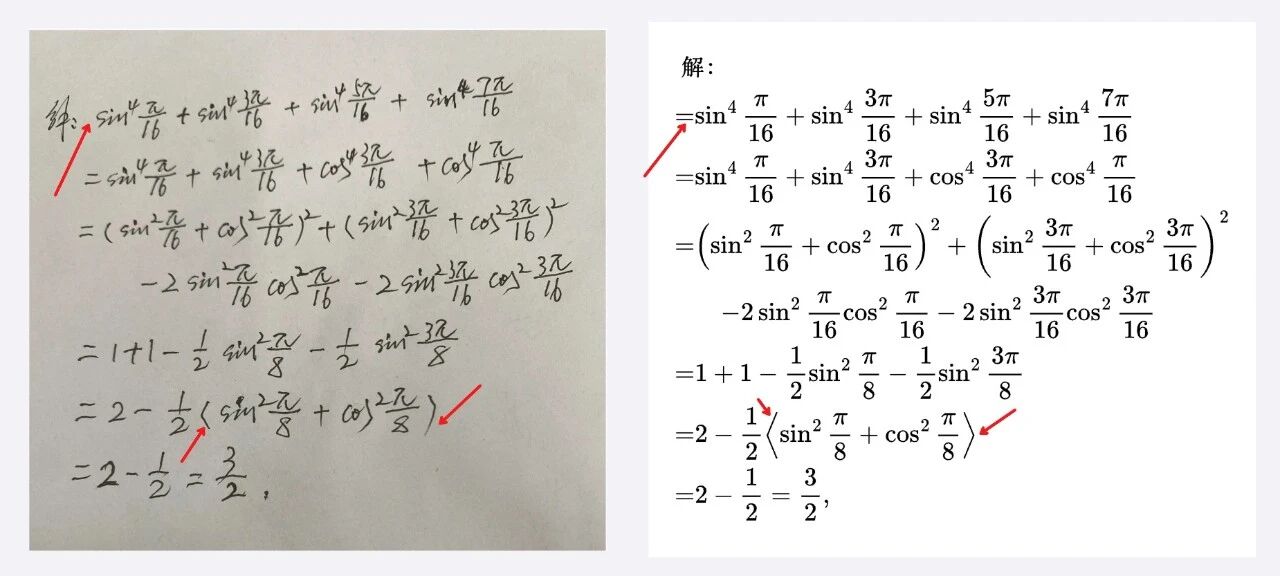 解: sin⁴ π/16 + sin⁴ 3π/16 + sin⁴ 5π/16 + sin⁴ 7π/16
= sin⁴ π/16 + sin⁴ 3π/16 + cos⁴ 3π/16 + cos⁴ π/16
= (sin² π/16 + cos² π/16)² + (sin² 3π/16 + cos² 3π/16)²
- 2 sin² π/16 cos² π/16 - 2 sin² 3π/16 cos² 3π/16
= 1 + 1 - 1/2 sin² π/8 - 1/2 sin² 3π/8
= 2 - 1/2 ⟨sin² π/8 + cos² π/8⟩
= 2 - 1/2 = 3/2 ,
解：
=sin⁴ π/16 + sin⁴ 3π/16 + sin⁴ 5π/16 + sin⁴ 7π/16
=sin⁴ π/16 + sin⁴ 3π/16 + cos⁴ 3π/16 + cos⁴ π/16
=(sin² π/16 + cos² π/16)² + (sin² 3π/16 + cos² 3π/16)²
-2 sin² π/16 cos² π/16 - 2 sin² 3π/16 cos² 3π/16
=1 + 1 - 1/2 sin² π/8 - 1/2 sin² 3π/8
=2 - 1/2 ⟨sin² π/8 + cos² π/8⟩
=2 - 1/2 = 3/2,